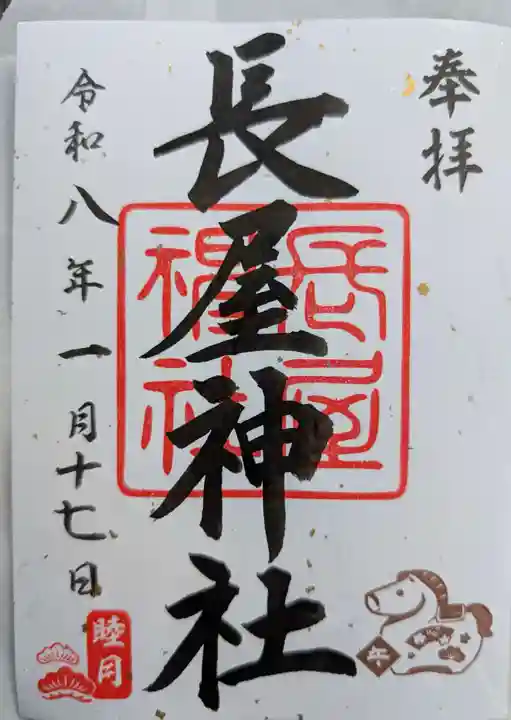 奉拝
長屋神社
長屋神社
令和八年一月十七日
睦月
午